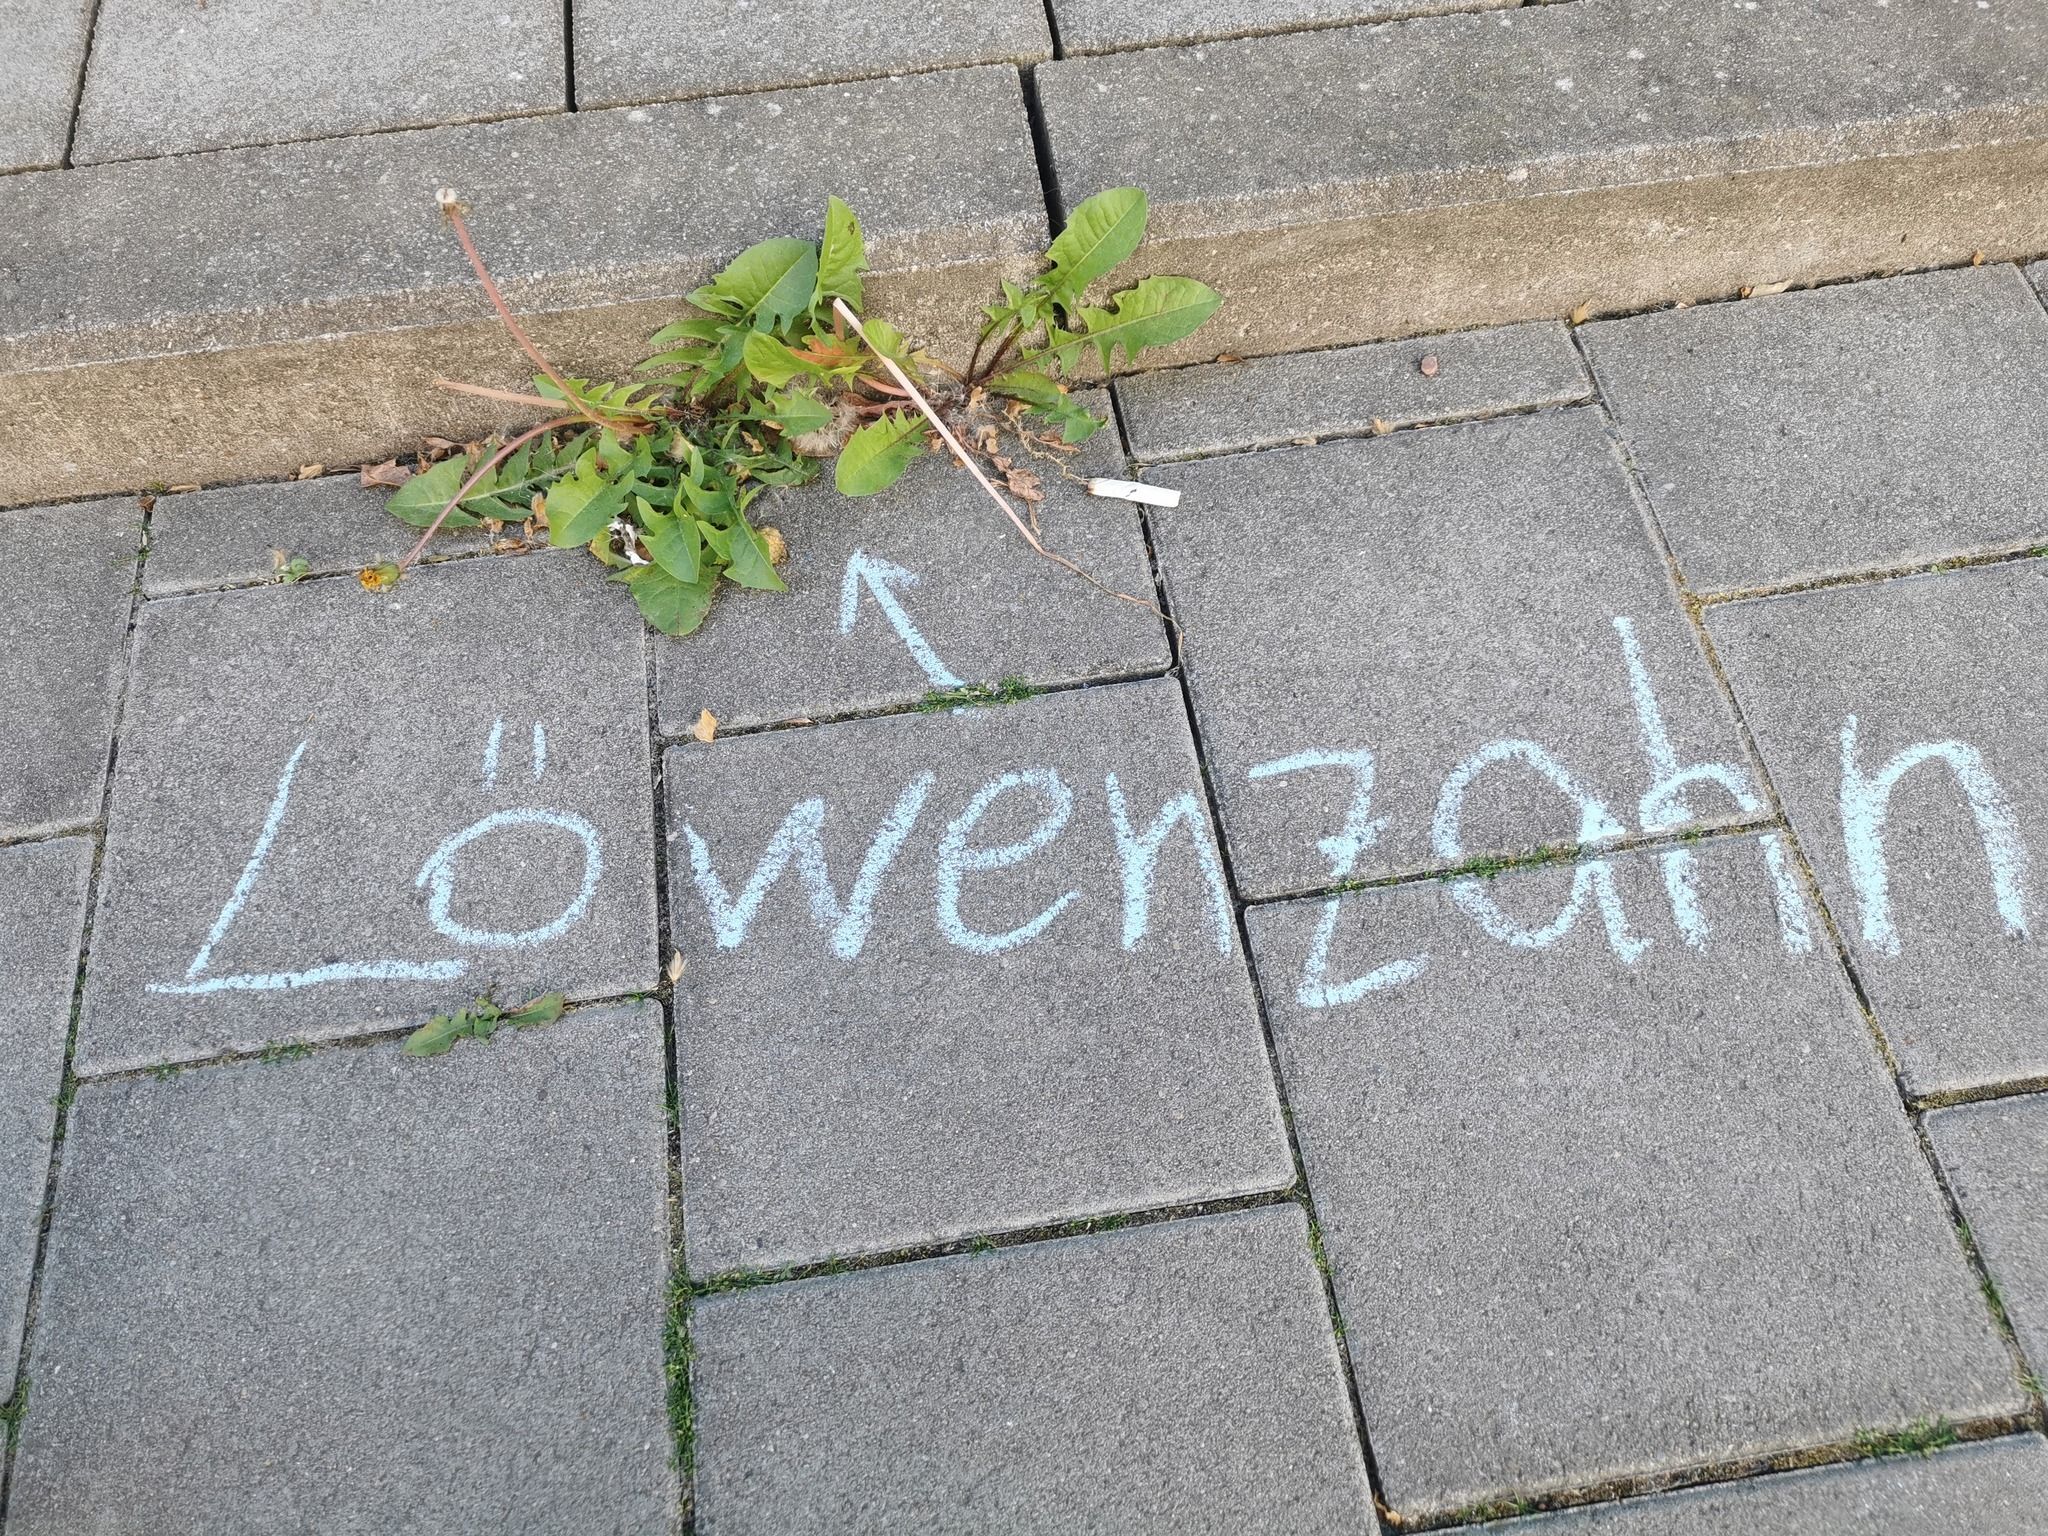 Löwenzahn